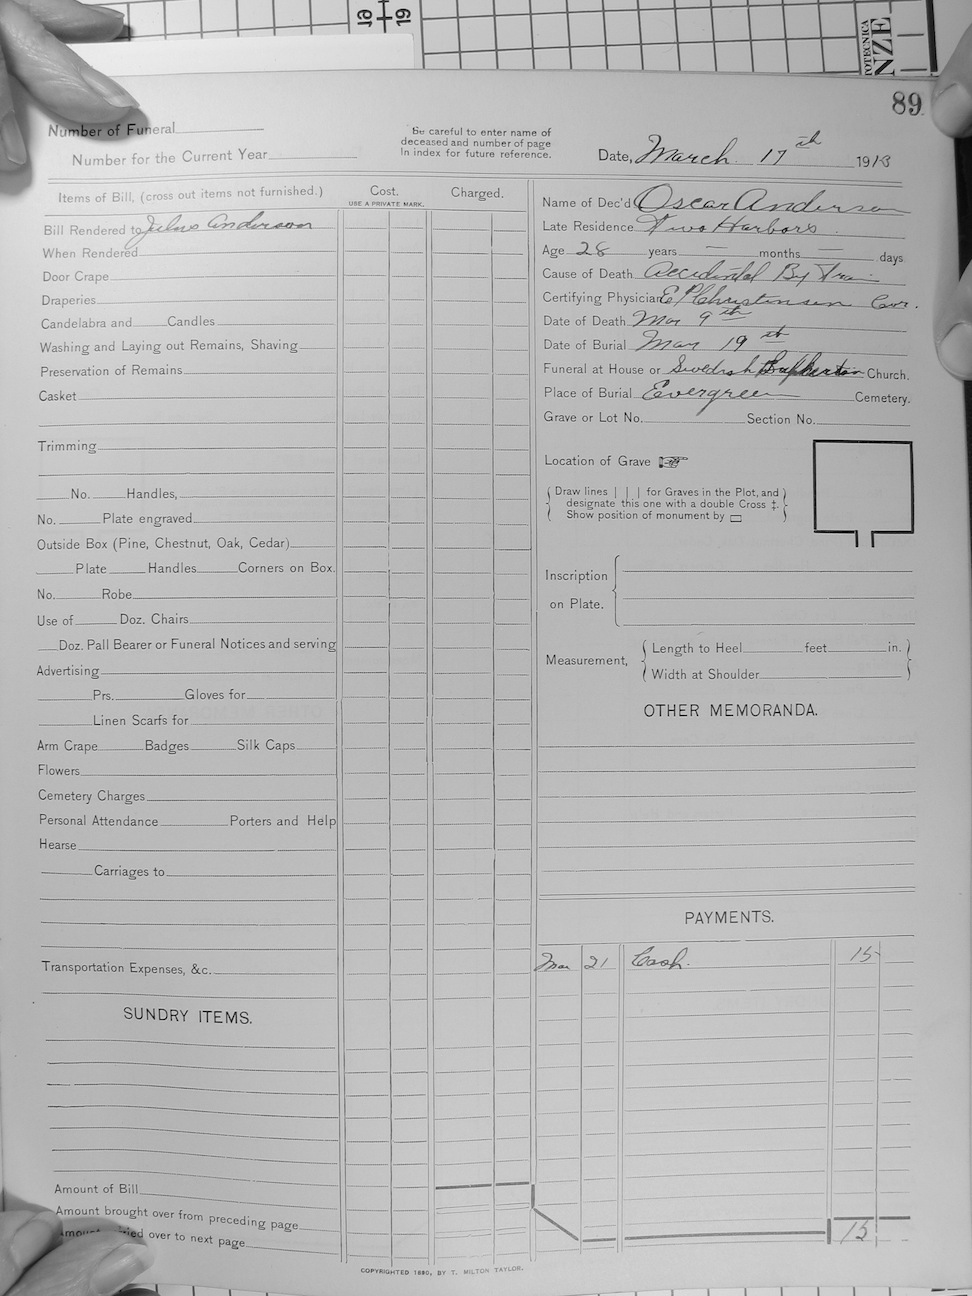 19
NZE
89
Number of Funeral
Number for the Current Year
Be careful to enter name of
deceased and number of page
In index for future reference.
Date, March 17th 1913
Items of Bill, (cross out items not furnished.)
Cost.
USE A PRIVATE MARK.
Charged.
Bill Rendered to Julius Anderson
When Rendered
Door Crape
Draperies
Candelabra and Candles
Washing and Laying out Remains, Shaving
Preservation of Remains
Casket
Trimming
No. Handles,
No. Plate engraved
Outside Box (Pine, Chestnut, Oak, Cedar)
Plate Handles Corners on Box.
No. Robe
Use of Doz. Chairs
Doz. Pall Bearer or Funeral Notices and serving
Advertising
Prs. Gloves for
Linen Scarfs for
Arm Crape Badges Silk Caps
Flowers
Cemetery Charges
Personal Attendance Porters and Help
Hearse
Carriages to
Transportation Expenses, &c.
SUNDRY ITEMS.
Amount of Bill
Amount brought over from preceding page
over to next page
Name of Dec'd Oscar Anderson
Late Residence Two Harbors
Age 28 years — months — days
Cause of Death Accidental By Train
Certifying Physician E P Christensen Cor.
Date of Death Mar 9th
Date of Burial Mar 19th
Funeral at House or Swedish Church.
Place of Burial Evergreen Cemetery.
Grave or Lot No. Section No.
Location of Grave
Draw lines | | | for Graves in the Plot, and
designate this one with a double Cross ‡.
Show position of monument by ▭
Inscription
on Plate.
Measurement,
Length to Heel feet in.
Width at Shoulder
OTHER MEMORANDA.
PAYMENTS.
Mar 21 Cash. 15
15
COPYRIGHTED 1890, BY T. MILTON TAYLOR.